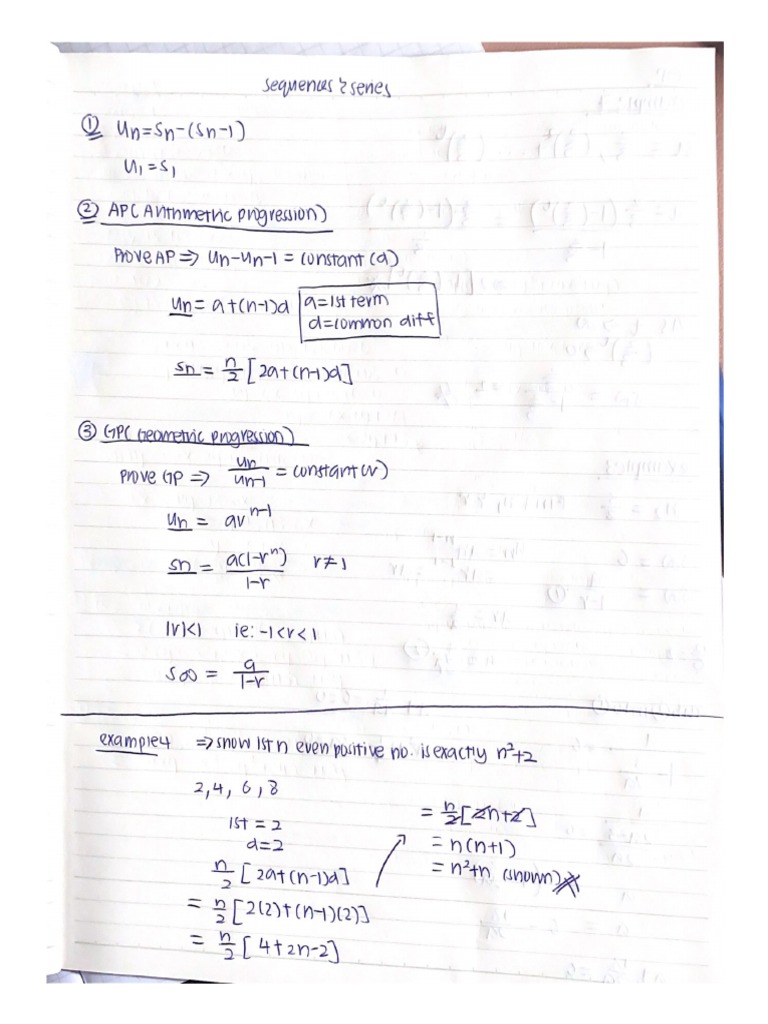 sequences & series
① Un=Sn-(Sn-1)
U1=S1
② AP(Arithmetric progression)
Prove AP => Un-Un-1 = constant (d)
Un= a+(n-1)d
a=1st term
d=common diff
Sn = n/2 [2a+(n-1)d]
③ GP( Geometric progression)
Prove GP => Un/Un-1 = constant(r)
Un = ar^n-1
Sn = a(1-r^n)/1-r r≠1
|r|<1 ie: -1<r<1
S∞ = a/1-r
example 4 => show 1st n even positive no. is exactly n²+2
2,4, 6,8
1st = 2
d=2
n/2 [2a+(n-1)d]
= n/2 [2(2)+(n-1)(2)]
= n/2 [4+2n-2]
= n/2 [2n+2]
= n(n+1)
= n²+n (shown)